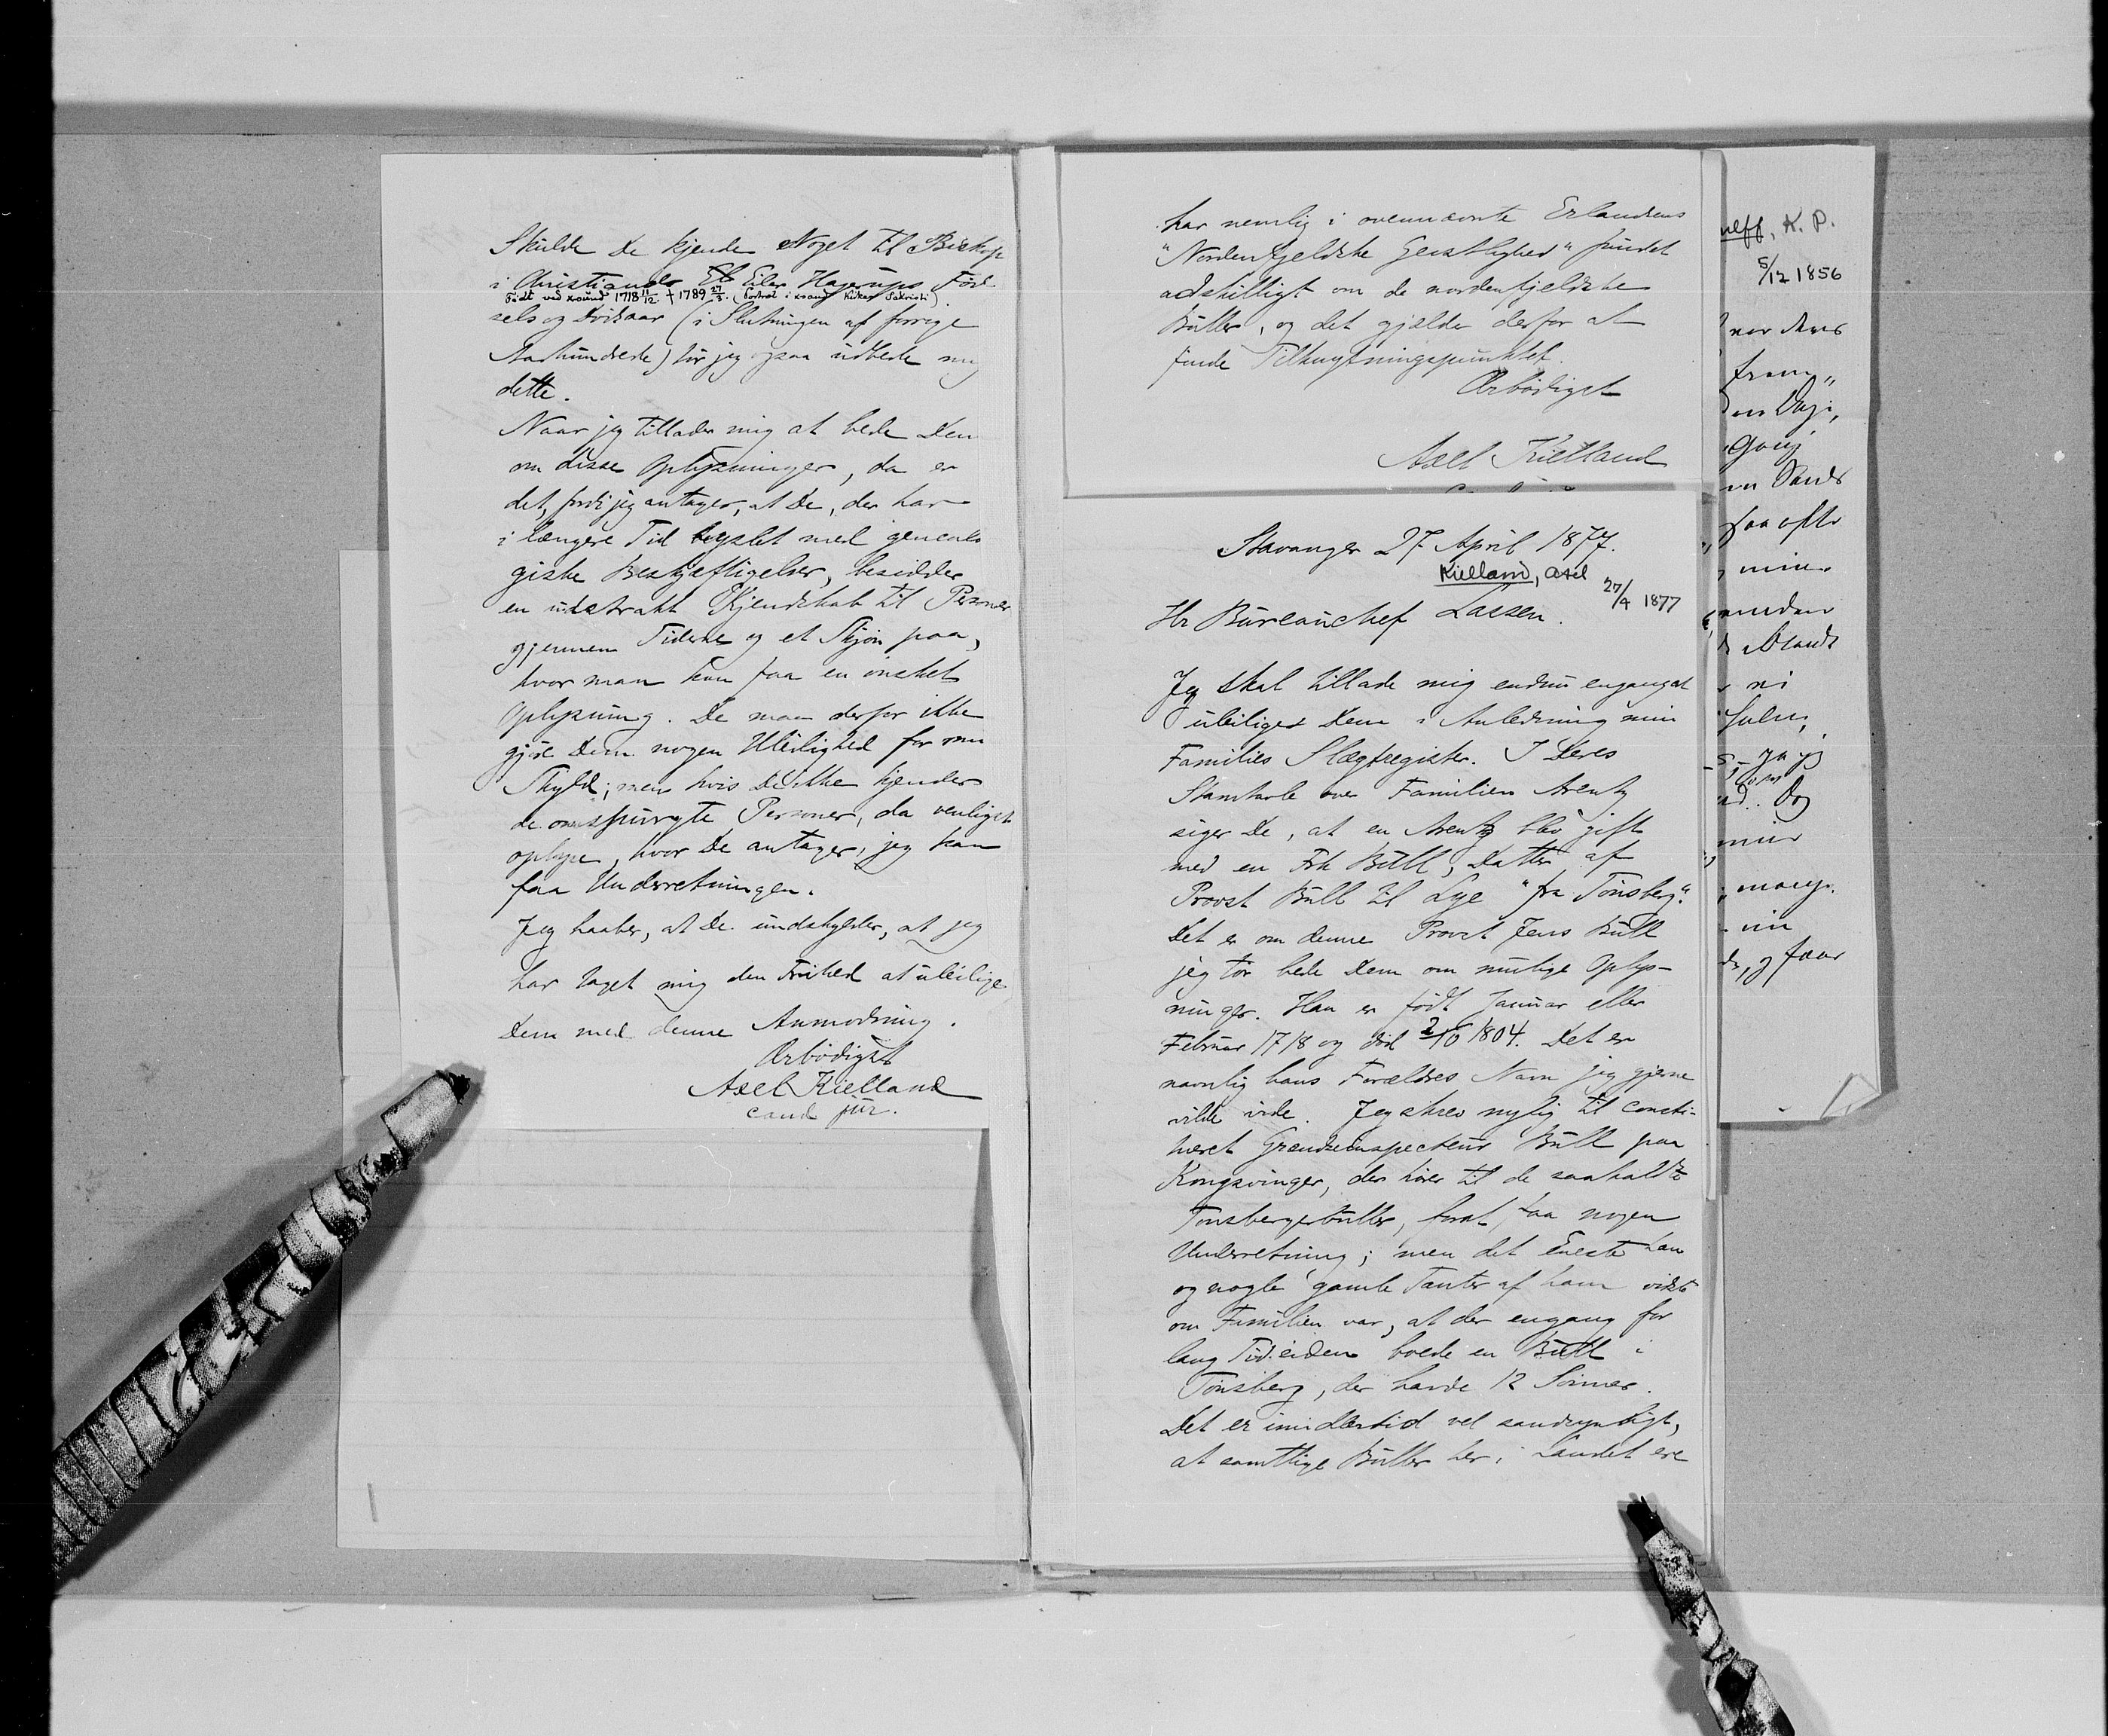 Skulde De kjende Noget til Biskop
i Christiands Eiler Hagerups Fød-
Født ved xsund 1718 11/12 † 1789 27/3. (Portræt i xsands Kirkes Sakristi)
sels og Dødsaar (i Slutningen af forrige
Aarhundrede) tør jeg ogsaa udbede mig
dette.
Naar jeg tillader mig at bede Dem
om disse Oplysninger, da er
det, fordi jeg antager, at De, der har
i længere Tid syslet med genealo
giske Beskjæftigelser, besidder
en udstrakt Kjendskab til Personer
gjennem Tiderne og et Skjøn paa,
hvor man kan faa en ønsket
Oplysning. De maa derfor ikke
gjøre Dem nogen Uleilighed for min
Skyld; men hvis De ikke kjender
de omspurgte Personer, da venligst
oplyse, hvor De antager, jeg kan
faa Underretningen.
Jeg haaber, at De undskylder, at jeg
har taget mig den Frihed at uleilige
Dem med denne Anmodning.
Ærbødigst
Axel Kielland
cand jur.
har nemlig i ovennævnte Erlandsens
"Nordenfjeldske Geistlighed" fundet
adskilligt om de nordenfjeldske
Buller, og det gjælder derfor at
finde Tilknytningspunktet.
Ærbødigst
Axel Kielland
Stavanger 27 April 1877.
Kielland, Axel
27/4 1877
Hr Bureauchef Lassen.
Jeg skal tillade mig endnu engang at
uleilige Dem i Anledning min
Families Slægtregister. I Deres
Stamtavle over Familien Arentz
siger De, at en Arentz blev gift
med en Frk Bull, Datter af
Provst Bull til Lye "fra Tønsberg".
Det er om denne Provst Jens Bull
jeg tør bede Dem om mulige Oplys-
ninger. Han er født Januar eller
Februar 1718 og død 2/10 1804. Det er
navnlig hans Forældres Navn jeg gjerne
vilde vide. Jeg skrev nylig til consti-
tueret Grændseinspecteur Bull paa
Kongsvinger, der hører til de saakaldte
Tønsbergerbuller, forat faa nogen
Underretning; men det Eneste han
og nogle gamle Tanter af ham vidste
om Familien var, at der engang for
lang Tid siden boede en Bull i
Tønsberg, der havde 12 Sønner.
Det er imidlertid vel sandsynligt,
at samtlige Buller her i Landet ere
K. P.
5/12 1856